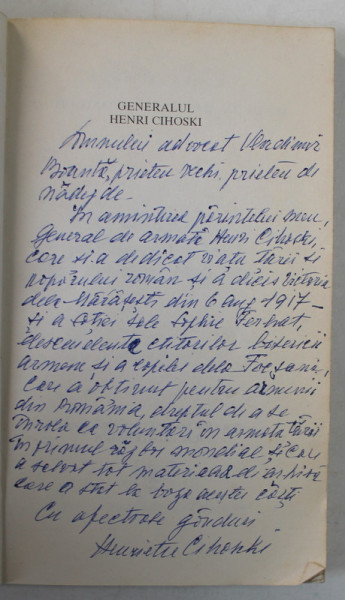 GENERALUL
HENRI CIHOSKI
Domnului advocat Vladimir
Boantă, prieten vechi, prieten de
nădejde.
În amintirea părintelui meu,
General de armată Henri Cihoski,
care și-a dedicat viața țării și
poporului român și a decis victoria
dela Mărășești, din 6 aug 1917 –
și a soției sale Sophie Ferhat,
descendentă ctitorilor bisericii
armene și a copiilor dela Focșani,
care a obținut pentru armenii
din România, dreptul de a se
înrola ca voluntari în armata țării
în primul război mondial și care
a salvat tot materialul de arhivă
care a stat la baza acestei cărți
Cu afectuoase gânduri
Henrieta Cihoski